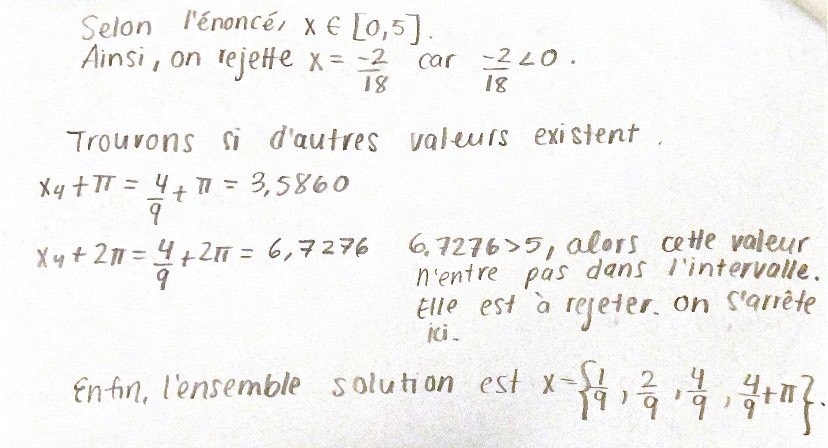 Selon l'énoncé, x ∈ [0,5].
Ainsi, on rejette x = -2/18 car -2/18 < 0.
Trouvons si d'autres valeurs existent.
x₄ + π = 4/9 + π = 3,5860
x₄ + 2π = 4/9 + 2π = 6,7276 6,7276 > 5, alors cette valeur
n'entre pas dans l'intervalle.
Elle est à rejeter. on s'arrête
ici.
Enfin, l'ensemble solution est x = {1/9, 2/9, 4/9, 4/9 + π}.